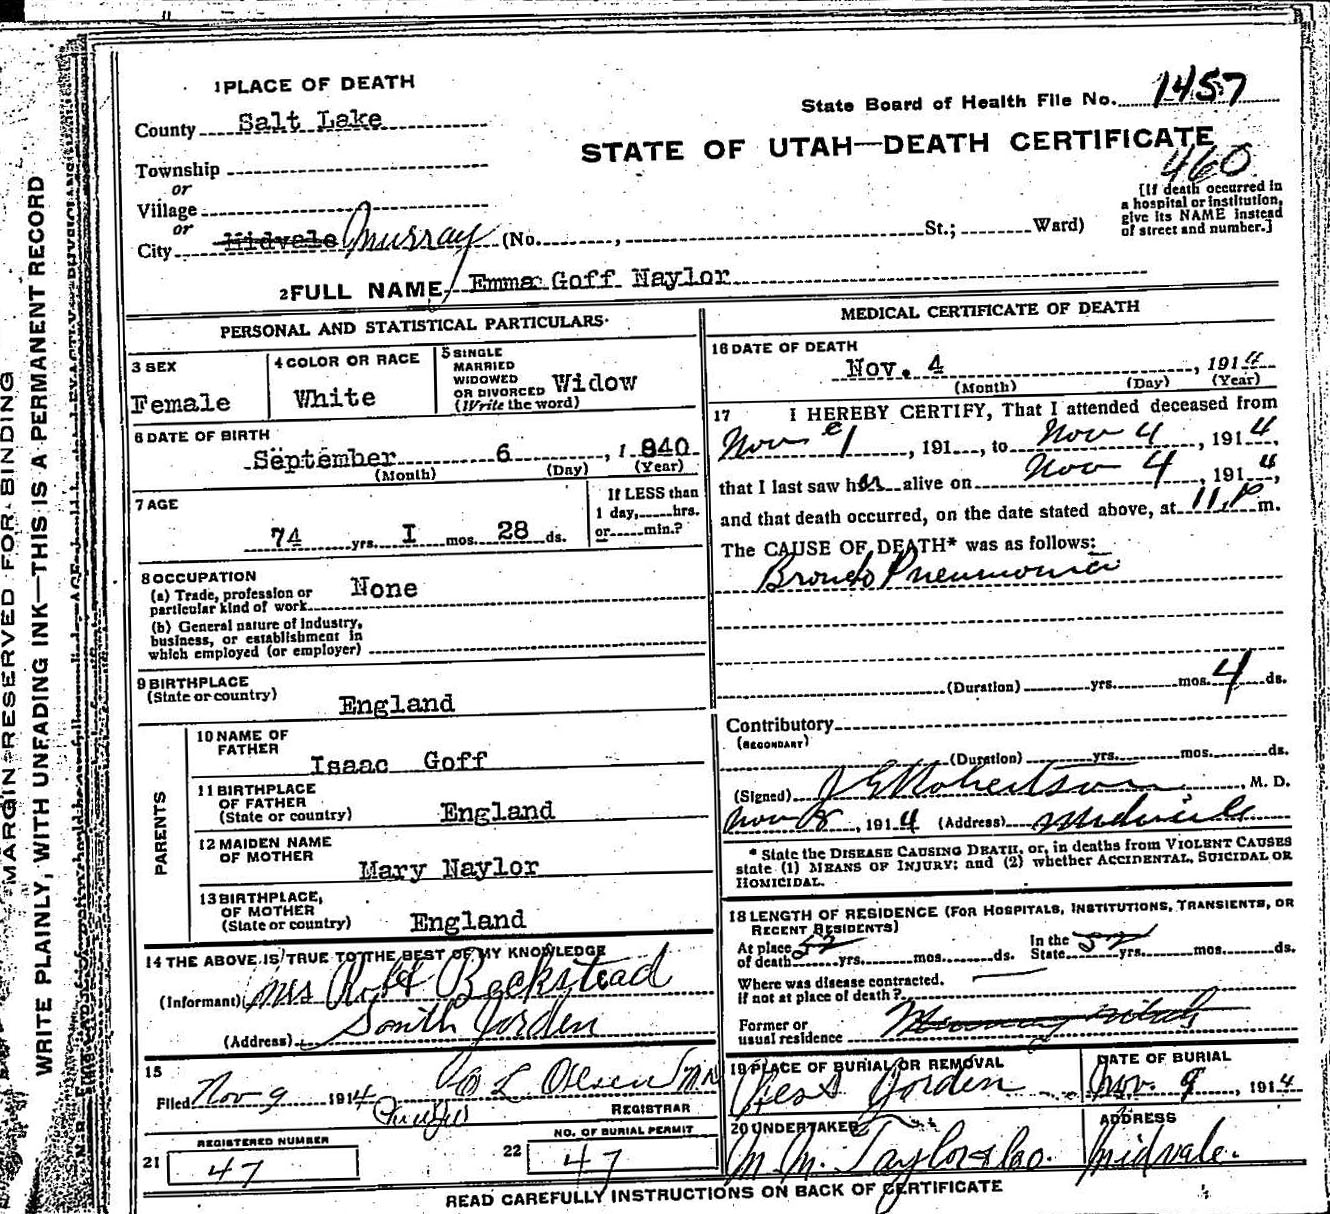 MARGIN RESERVED FOR BINDING
WRITE PLAINLY, WITH UNFADING INK—THIS IS A PERMANENT RECORD
1 PLACE OF DEATH
County Salt Lake
Township
or
Village
or
City Midvale Murray (No. , St.; Ward)
State Board of Health File No. 1457
STATE OF UTAH—DEATH CERTIFICATE
460
[If death occurred in
a hospital or institution,
give its NAME instead
of street and number.]
2 FULL NAME Emma Goff Naylor
PERSONAL AND STATISTICAL PARTICULARS
3 SEX
Female
4 COLOR OR RACE
White
5 SINGLE
MARRIED
WIDOWED
OR DIVORCED
(Write the word)
Widow
6 DATE OF BIRTH
September 6, 1840
(Month) (Day) (Year)
7 AGE
74 yrs. I mos. 28 ds.
If LESS than
1 day, hrs.
or min.?
8 OCCUPATION
(a) Trade, profession or
particular kind of work
None
(b) General nature of industry,
business, or establishment in
which employed (or employer)
9 BIRTHPLACE
(State or country)
England
PARENTS
10 NAME OF
FATHER
Isaac Goff
11 BIRTHPLACE
OF FATHER
(State or country)
England
12 MAIDEN NAME
OF MOTHER
Mary Naylor
13 BIRTHPLACE,
OF MOTHER
(State or country)
England
14 THE ABOVE IS TRUE TO THE BEST OF MY KNOWLEDGE
(Informant) Mrs Robt Beckstead
(Address) South Jorden
15
Filed Nov 9 1914 O L Olsen
REGISTRAR
REGISTERED NUMBER
21 47
NO. OF BURIAL PERMIT
22 47
MEDICAL CERTIFICATE OF DEATH
16 DATE OF DEATH
Nov. 4, 1914
(Month) (Day) (Year)
17 I HEREBY CERTIFY, That I attended deceased from
Nov 1, 191 , to Nov 4, 1914,
that I last saw her alive on Nov 4, 1914,
and that death occurred, on the date stated above, at 11 P m.
The CAUSE OF DEATH* was as follows:
Broncho Pneumonia
(Duration) yrs. mos. 4 ds.
Contributory
(SECONDARY)
(Duration) yrs. mos. ds.
(Signed) J E Robertson, M. D.
Nov 8, 1914 (Address) Midvale
* State the DISEASE CAUSING DEATH, or, in deaths from VIOLENT CAUSES
state (1) MEANS OF INJURY; and (2) whether ACCIDENTAL, SUICIDAL OR
HOMICIDAL.
18 LENGTH OF RESIDENCE (FOR HOSPITALS, INSTITUTIONS, TRANSIENTS, OR
RECENT RESIDENTS)
At place
of death 52 yrs. mos. ds.
In the
State 52 yrs. mos. ds.
Where was disease contracted,
if not at place of death?
Former or
usual residence Murray Utah
19 PLACE OF BURIAL OR REMOVAL
West Jorden
DATE OF BURIAL
Nov. 9, 1914
20 UNDERTAKER
M. M. Taylor & Co.
ADDRESS
Midvale.
READ CAREFULLY INSTRUCTIONS ON BACK OF CERTIFICATE